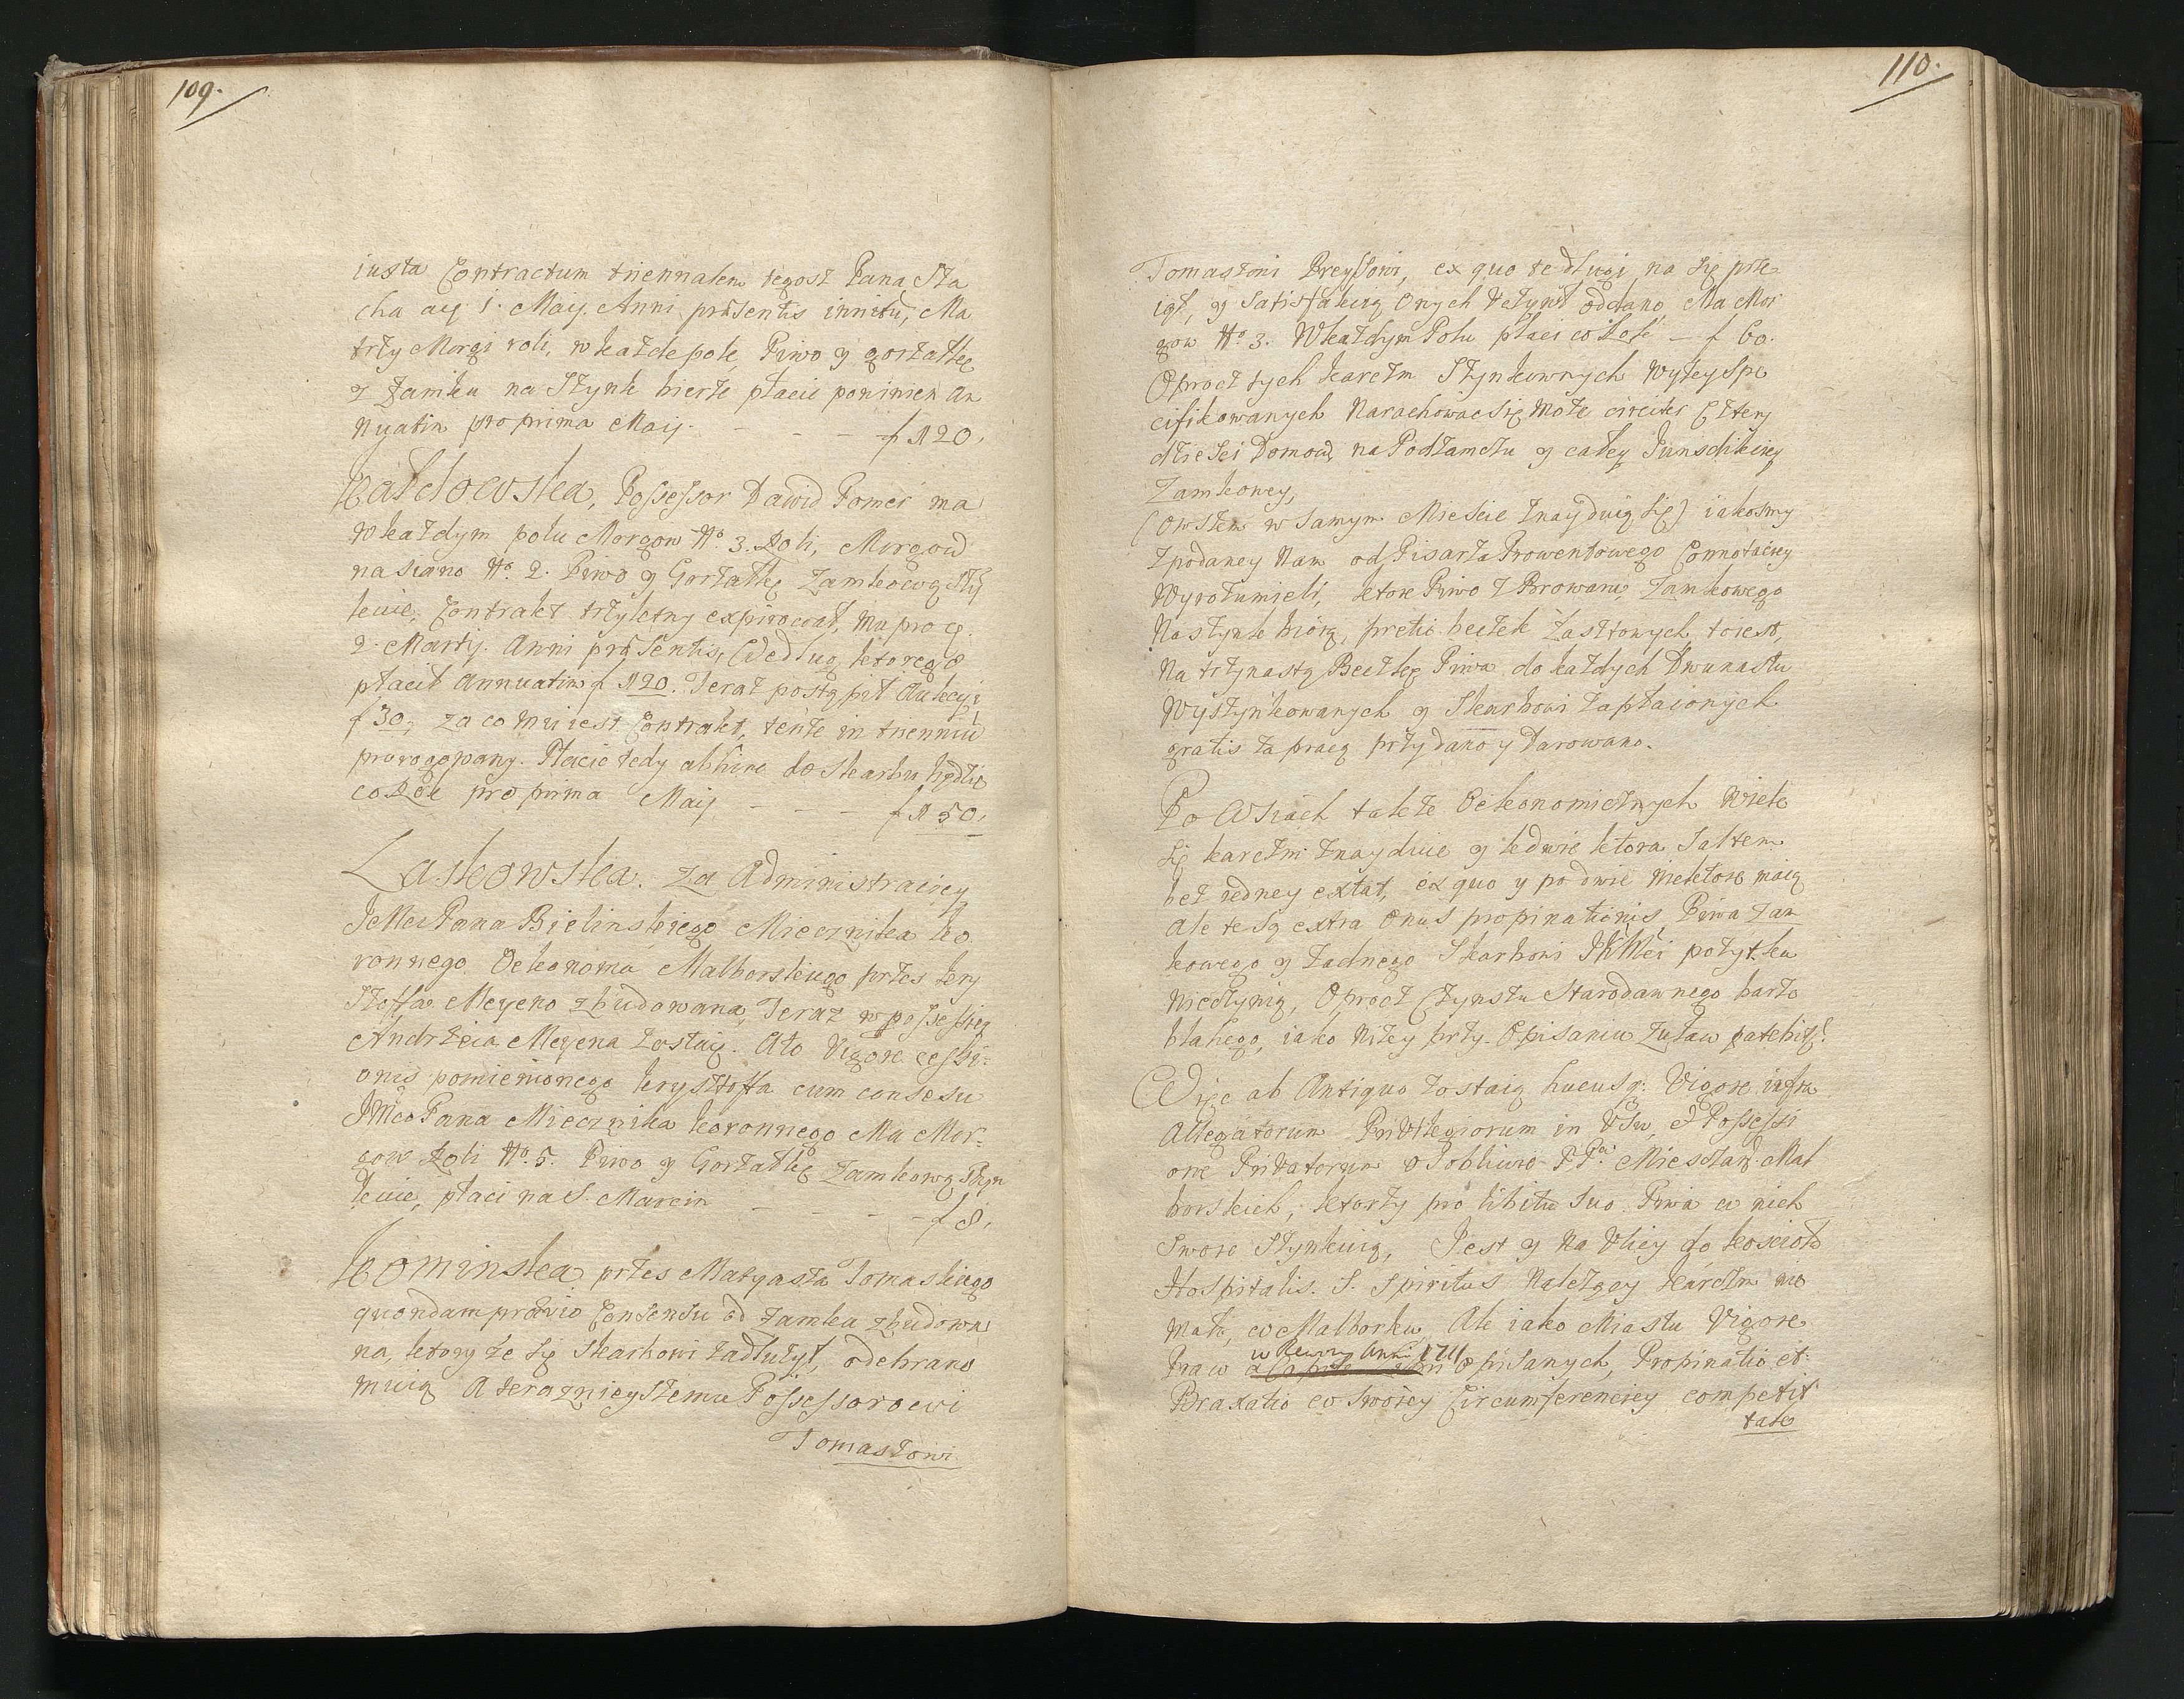 109.
iuxta Contractum triennalem tegosz Pana Sta
cha aq 1. Maij. Anni præsentis initū, Ma
trzy Morgi roli, w każde pole, Piwo y gorzałkę
z Zamku na Szynk bierze płacic powinien an
nuatim pro prima Maij - - - f 120.
Possessor Dawid Pomer ma
w każdym polu Morgow No. 3. Roli, Morgow
na siano No. 2. Piwo y Gorzałkę Zamkową szÿ
kuie, Contrakt trzyletny expirował, mu pro
2. Martij. Anni præsentis, Według ktorego
płacił annuatim f 120. Teraz postąpił Aukcyi
f 30, za co mu iest Contrakt, tenże in trienniū
prorogowany. Płacic tedy abhinc do skarbu będzie
co Rok pro prima Maij - - - f 150.
Laskowska. Za Administraciey
JeMci Pana Bielinskiego Miecznika Ko
ronnego Oekonoma Malborskiego przes Kry
sztoffa Meyeno zbudowana, Teraz w possessiey
Andrzeia Meyena zostaię. Ato Vigore cessi=
onis pomienionego Krysztoffa cum consesu
JMco Pana Miecznika koronnego Ma Mor=
gow Roli No. 5. Piwo y Gorzałkę Zamkową Szyn
kuie, płaci na S. Marcin - - - - f 8.
Kominska przes Matyasza Tomaskiego
quondam prævio Consensu od Zamku zbudowa
na, ktory że się skarbowi zadłużył, odebrano
muię A teraznieyszemu Possessorowi
Tomaszowi
110.
Tomaszoni Preyssowi, ex quo te długi na się prze
iął, y Satisfakcią onych uczynił oddano, Ma Mor
gow No. 3. W każdym Polu płaci co Rok — f 60.
Oprocz tych karczm Szynkownych Wyżey Spe
cifikowanych Narachowac się może circiter Cztery
dziesci Domow na Podzamczu y całey Jurisdikciey
Zamkowey,
(owszem w samym Miescie znayduią się) iakosmy
z podaney Nam od Pisarza Prowentowego Connotaciey
Wyrozumieli, ktore Piwo z Browaru Zamkowego
Na szynk biorą, pretii beczek Zasztowych toiest,
Na trzynastą Beczkę Piwa do każdych Dwunastu
Wyszynkowanych y Skarbowi zapłaconych
gratis za pracą przydano y Darowano.
Po Wsiach także Oekonomicznych Wiele
się karczm znayduie y ledwie ktora Saltem
bez iedney extat, ex quo y po dwie niektore maią
Ale te są extra Onus propinationis Piwa Zam
kowego y żadnego Skarbowi JKMci pożytku
Nieczynią, Oprocz Czynszu Starodawnego barzo
błahego, iako niżey przy Opisaniu Żuław patebit.
Więc ab Antiquo zostaią hucusq. Vigore infra
Allegatorum Privilegiorum in Usu, et Possessi
one Privatorum PP. Mieszczan Mal
borskich, ktorzy pro libitu suo Piwa w nich
swoie szynkuią, Jest y na Ulicy do kościoła
Hospitalis. S. Spiritus Należący karczm nie
mało, w Malborku, Ale iako Miastu Vigore
w Rewizy Anni 1711
Praw opisanych, Propinatio et
Braxatio w swoiey Circumferenciey competit
tak